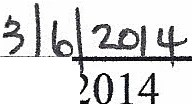 3/6/2014
2014